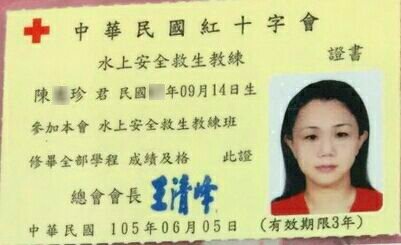 中華民國紅十字會
水上安全救生教練 證書
陳 珍 君 民國 年09月14日生
參加本會 水上安全救生教練班
修畢全部學程 成績及格 此證
總會會長 王清峰
中華民國 105年06月05日 (有效期限3年)